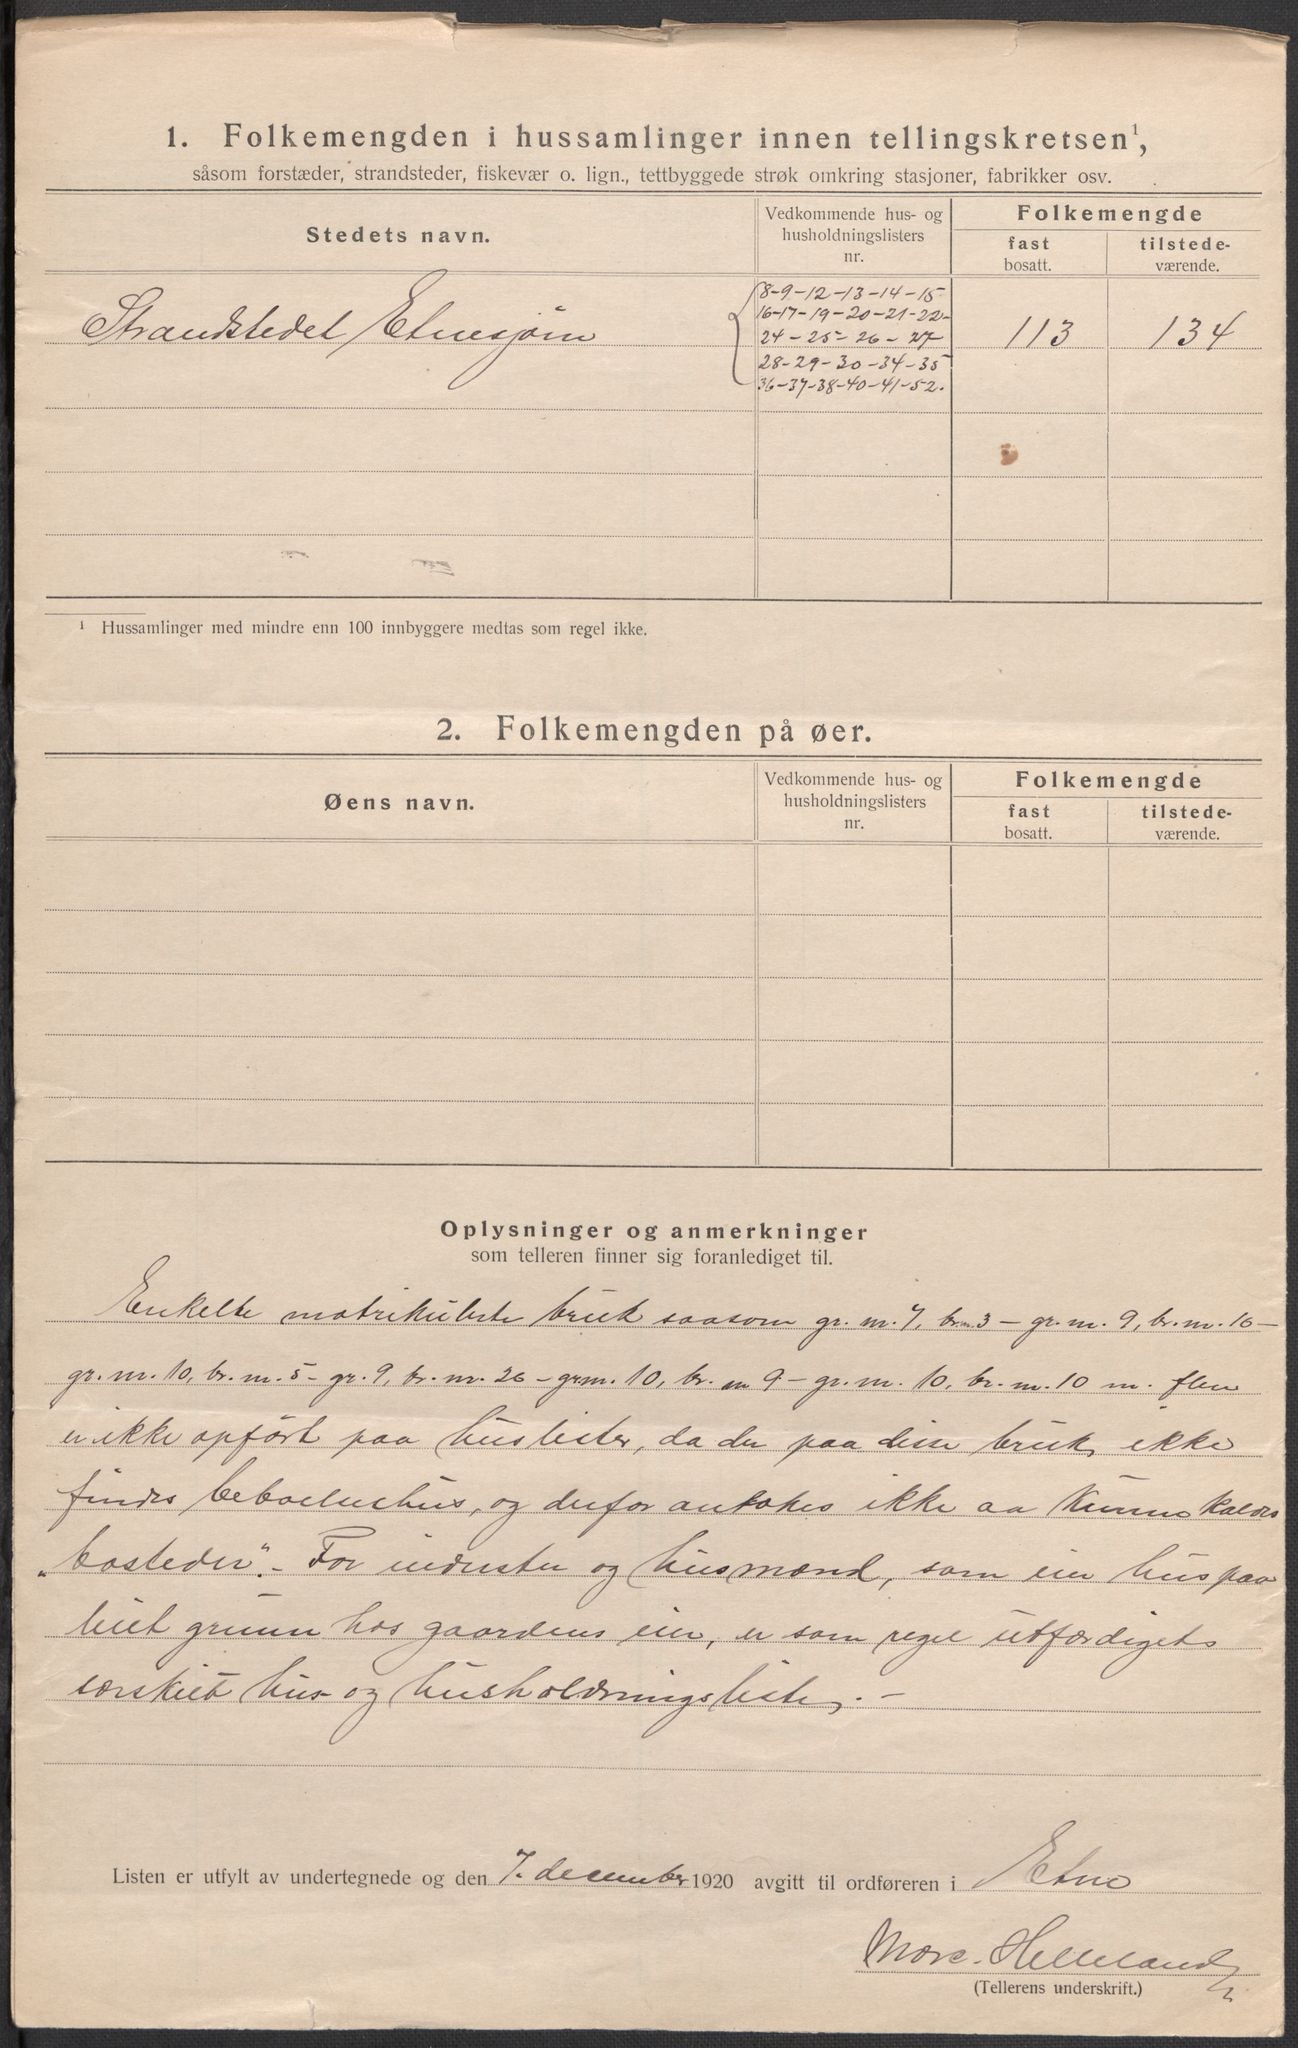 1. Folkemengden i hussamlinger innen tellingskretsen¹,
såsom forstæder, strandsteder, fiskevær o. lign., tettbyggede strøk omkring stasjoner, fabrikker osv.
Stedets navn.
Vedkommende hus- og husholdningslisters nr.
Folkemengde
fast bosatt.
tilstede-værende.
Strandstedet Etnesjøen
8-9-12-13-14-15
16-17-19-20-21-22-
24-25-26-27
28-29-30-34-35
36-37-38-40-41-52.
113
134
¹ Hussamlinger med mindre enn 100 innbyggere medtas som regel ikke.
2. Folkemengden på øer.
Øens navn.
Vedkommende hus- og husholdningslisters nr.
Folkemengde
fast bosatt.
tilstede-værende.
Oplysninger og anmerkninger
som telleren finner sig foranlediget til.
Enkelte matrikulerte bruk saasom gr. nr. 7, br. nr. 3 – gr. nr. 9, br. nr. 16 –
gr. nr. 10, br. nr. 5 – gr. 9, br. nr. 26 – gr nr. 10, br. nr 9 – gr. nr. 10, br. nr. 10 m. flere
er ikke opført paa huslister, da der paa disse bruk ikke
findes beboelseshus, og derfor antakes ikke aa kunne kaldes
„bosteder“. – For inderster og husmænd, som eier hus paa
leiet grunn hos gaardens eier, er som regel utfærdiget
særskilt hus- og husholdningslister. –
Listen er utfylt av undertegnede og den 7. december 1920 avgitt til ordføreren i Etne
Helleland
(Tellerens underskrift.)